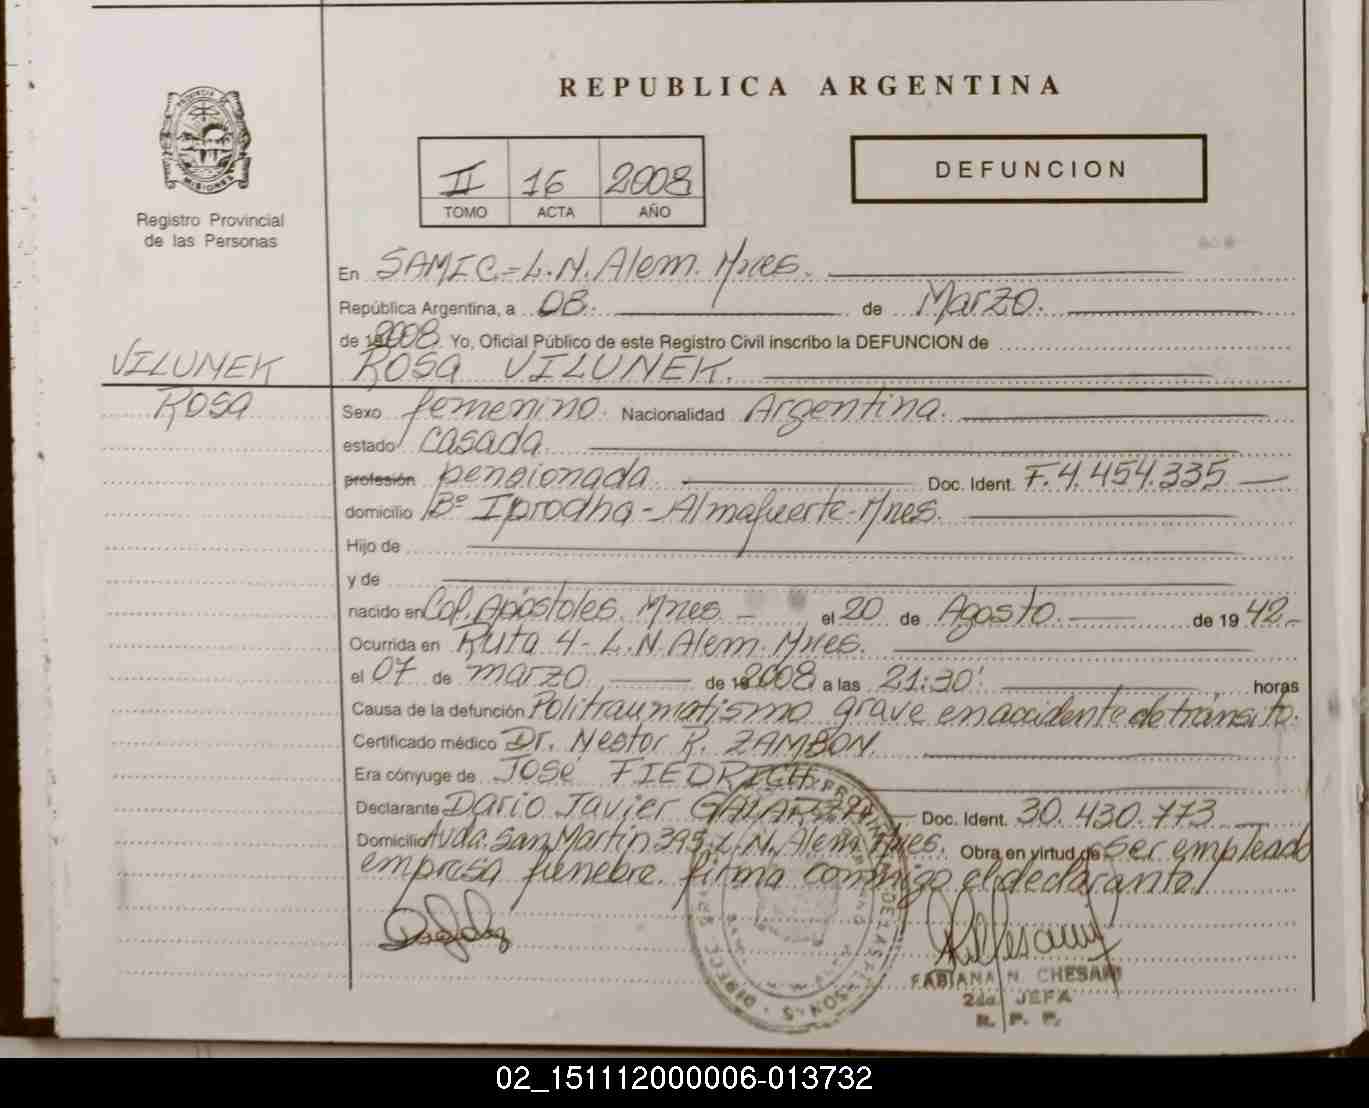 REPUBLICA ARGENTINA
II 16 2008
TOMO ACTA AÑO
DEFUNCION
PROVINCIA DE
MISIONES
Registro Provincial
de las Personas
En SAMIC=L.N.Alem. Mnes.
República Argentina, a 08. de Marzo.
de 2008. Yo, Oficial Público de este Registro Civil inscribo la DEFUNCION de
VILUNEK
ROSA VILUNEK.
ROSA
Sexo femenino. Nacionalidad Argentina.
estado casada.
profesión pensionada. Doc. Ident. F.4.454.335
domicilio Bº Iprodha-Almafuerte-Mnes.
Hijo de
y de
nacido en Col. Apóstoles. Mnes - el 20 de Agosto. de 1942.-
Ocurrida en Ruta 4-L.N.Alem. Mnes.
el 07 de marzo. de 2008. a las 21:30' horas
Causa de la defunción Politraumatismo grave en accidente de tránsito.
Certificado médico Dr. Nestor R. ZAMBON.
Era cónyuge de José FIEDRICH
Declarante Dario Javier GALARZA Doc. Ident. 30.430.773
Domicilio Avda. San Martin 395-L.N.Alem. Mnes. Obra en virtud de ser empleado
empresa fúnebre. firma conmigo el declarante/
FABIANA N. CHESANI
2da. JEFA
R. P. P.
02_151112000006-013732